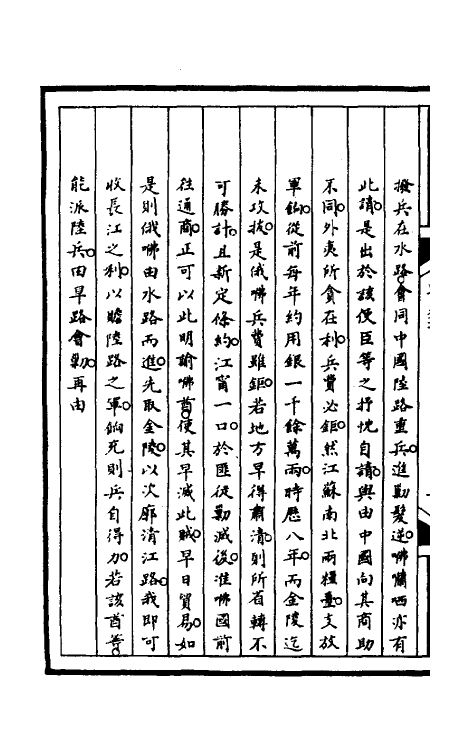 撥兵在水路會同中國陸路重兵進勦髮逆咈囒哂亦有
此請是出於該使臣等之抒忱自請與由中國向其商助
不同外夷所貪在利兵費必鉅然江蘇南北兩糧臺支放
軍餉從前每年約用銀一千餘萬兩時歷八年而金陵迄
未攻拔是俄咈兵費雖鉅若地方早得肅清則所省轉不
可勝計且新定條約江甯一口於匪徒勦滅後准咈國前
往通商正可以此明諭咈酋使其早滅此賊早日貿易如
是則俄咈由水路而進先取金陵以次廓清江路我即可
收長江之利以贍陸路之軍餉充則兵自得力若該酋等
能派陸兵由旱路會勦再由